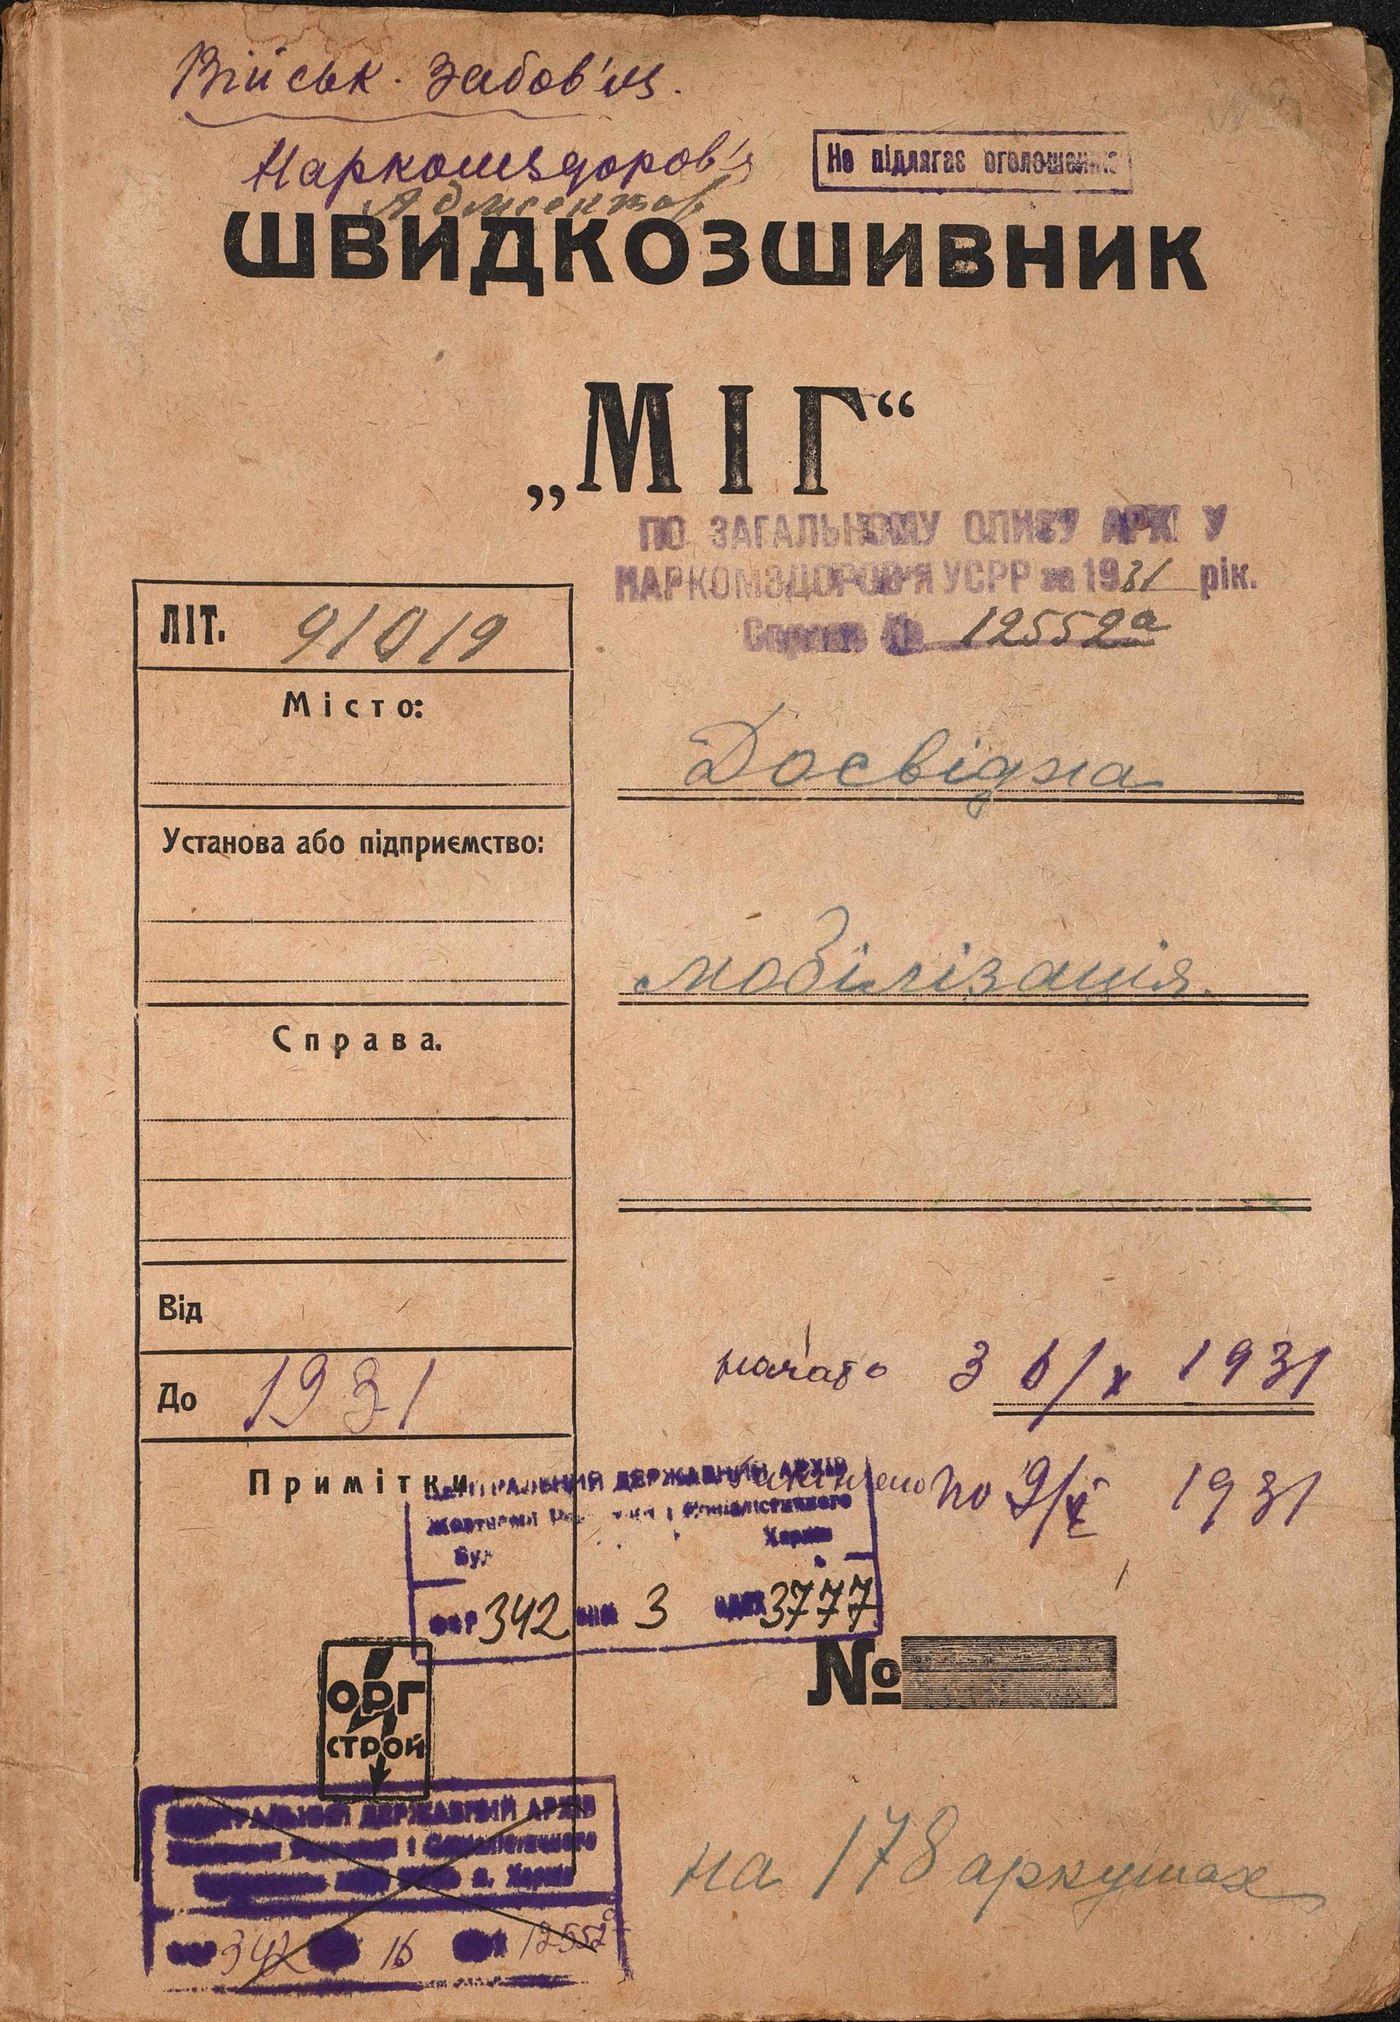 Військ. Забов'яз.
Наркомздоров'я
Не підлягає оголошенню
Адмсектор
ШВИДКОЗШИВНИК
„МІГ“
ПО ЗАГАЛЬНОМУ ОПИСУ АРХІ У
НАРКОМЗДОРОВ'Я УСРР за 1931 рік.
Справа № 12552а
ЛІТ. 91019
Місто:
Досвідна
Установа або підприємство:
мобілізація.
Справа.
Від
начато 3 6/X 1931
До 1931
Примітки
закінчено по 9/X 1931
ЦЕНТРАЛЬНИЙ ДЕРЖАВНИЙ АРХІВ
Жовтневої і Соціалістичного
Харків
ФОР 342 ОПИС 3 ОДЗХ 3777
№
ОРГ
СТРОЙ
ЦЕНТРАЛЬНИЙ ДЕРЖАВНИЙ АРХІВ
і Соціалістичного
м. Харків
ФОР 342 16 12552а
на 178 аркушах